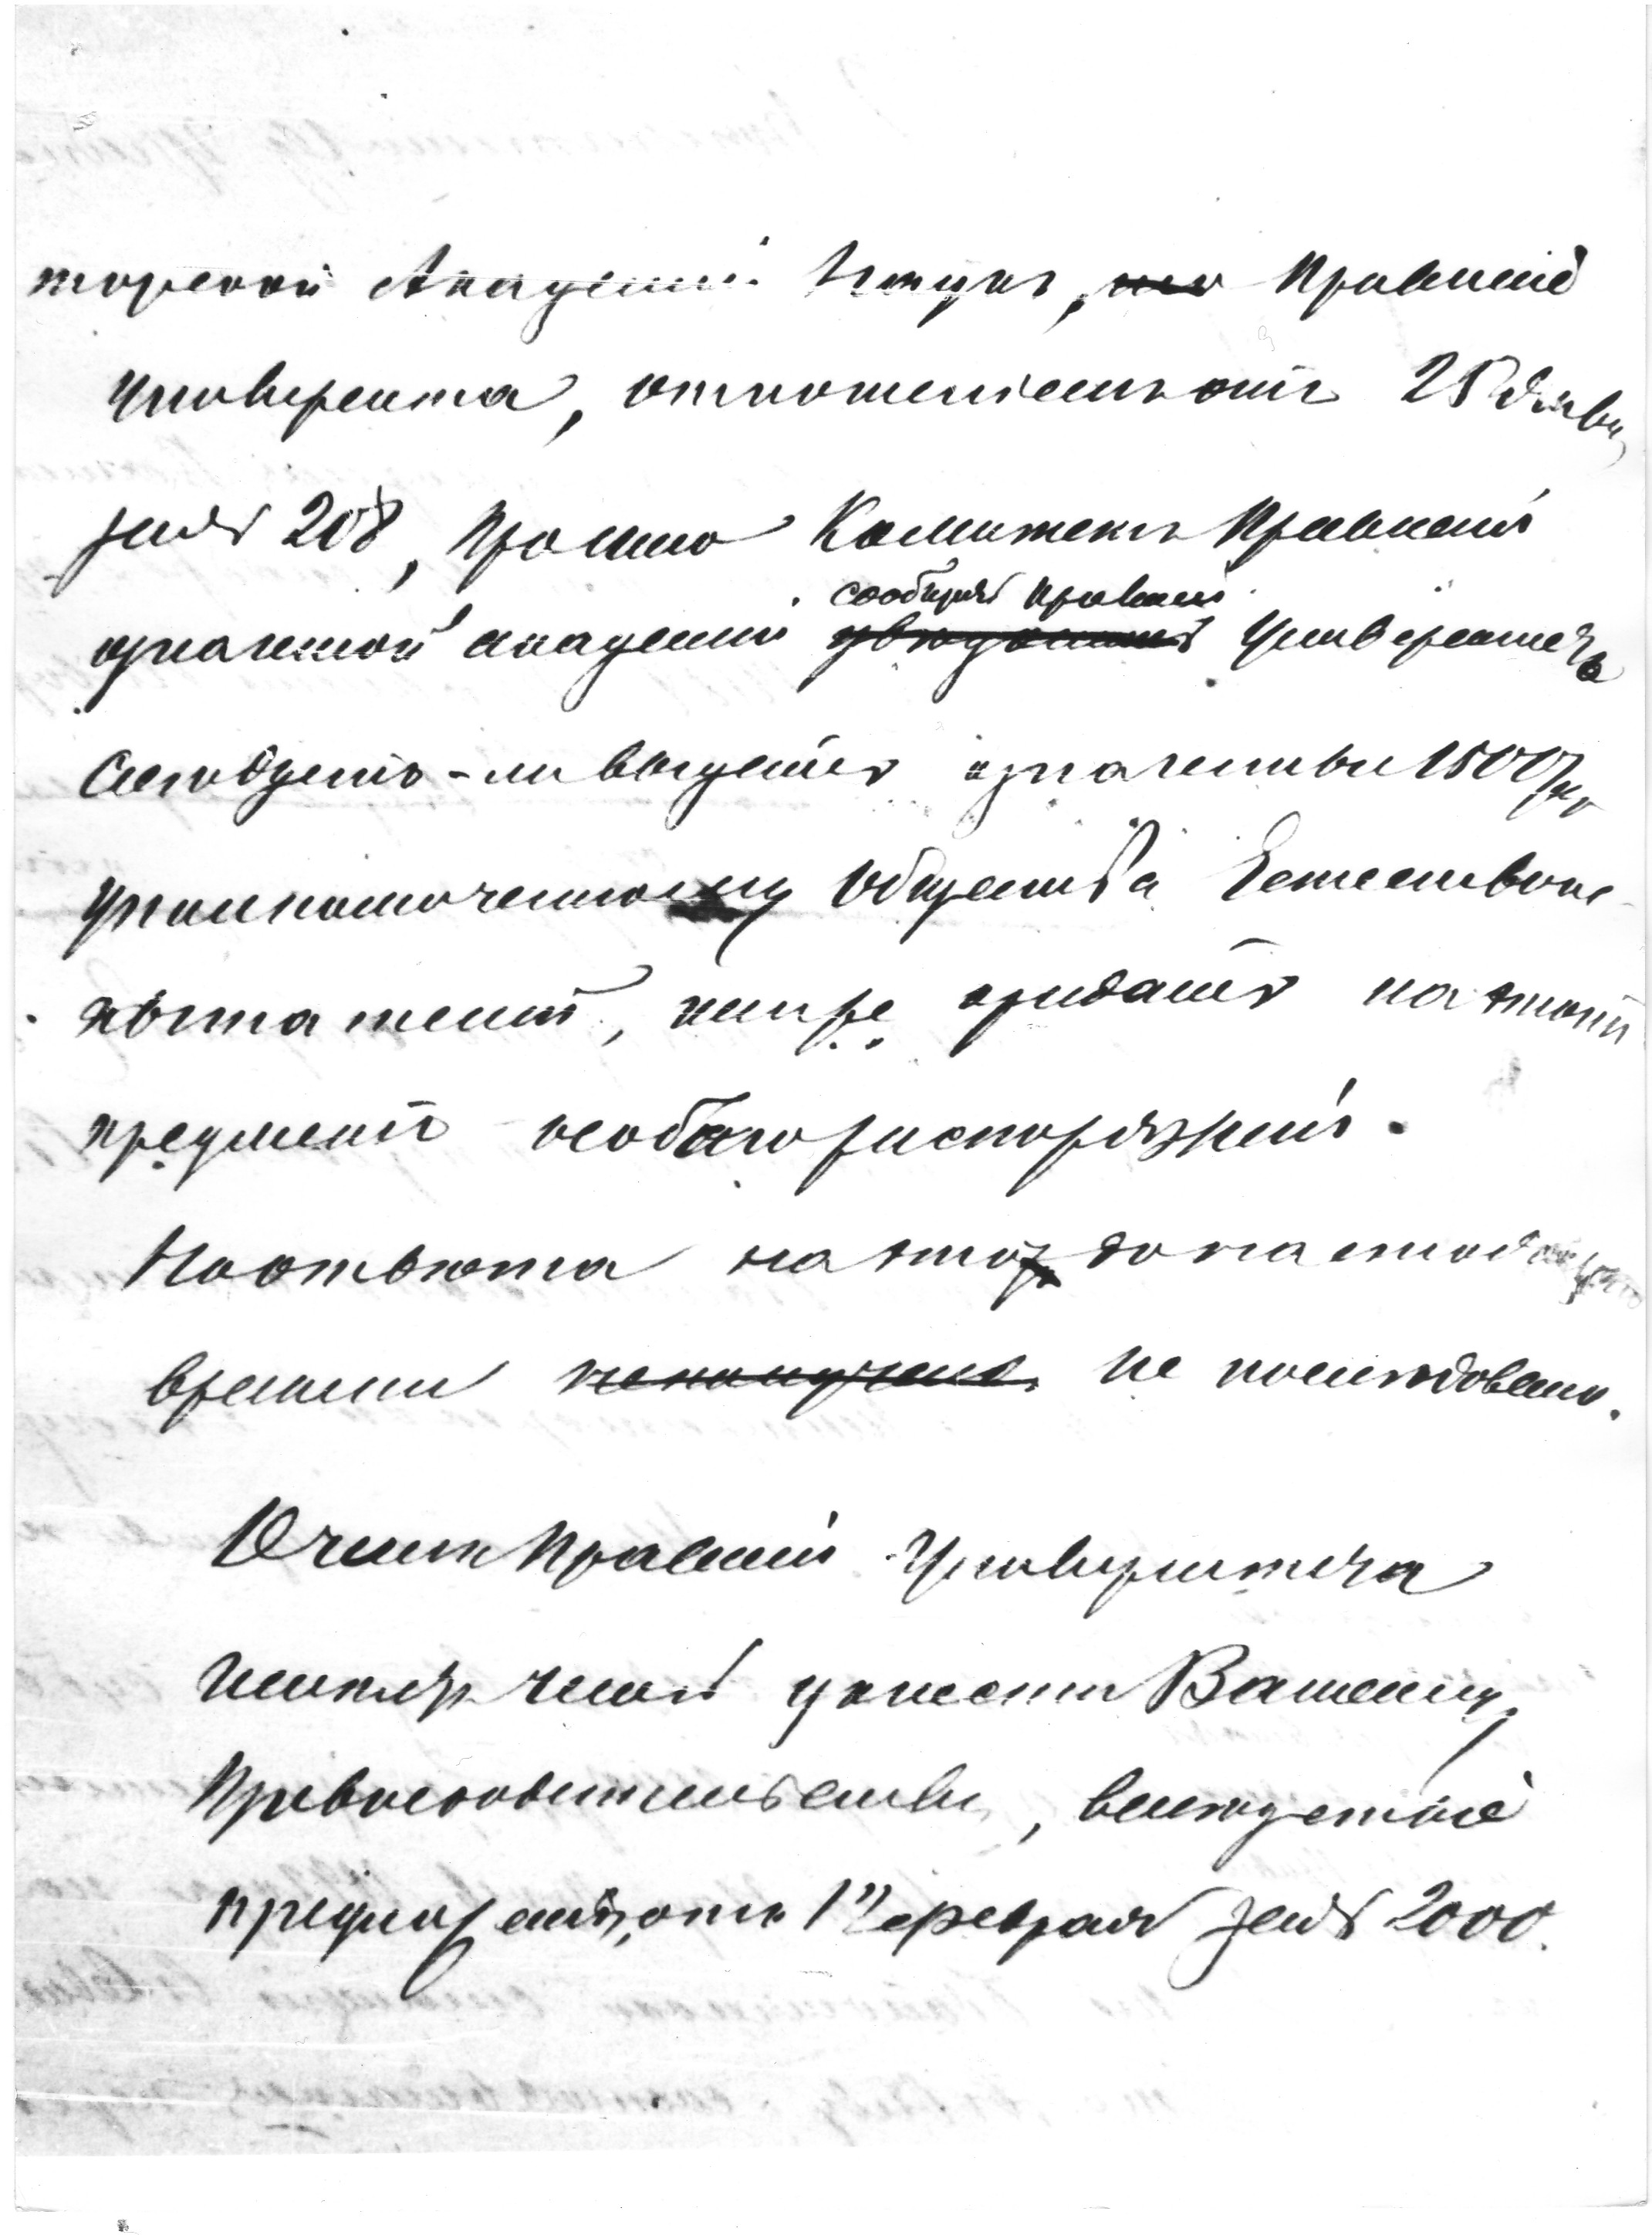 торской Академіи Наукъ, Правленіе
Университета, отношеніемъ отъ 25 Янва
за № 208, просило Комитетъ Правленія
означенной академіи сообщить Правленію Университета
Слѣдуетъ-ли выдать означенные 1500 р.
уполномоченному Общества Естествоис-
пытателей, или же ожидать на этотъ
предметъ особаго распоряженія.
Но отвѣта на это до настоящаго
времени не послѣдовало.
О чемъ Правленіе Университета
имѣетъ честь донести Вашему
Превосходительству, вслѣдствіе
предложенія, отъ 1 Февраля за № 2000.